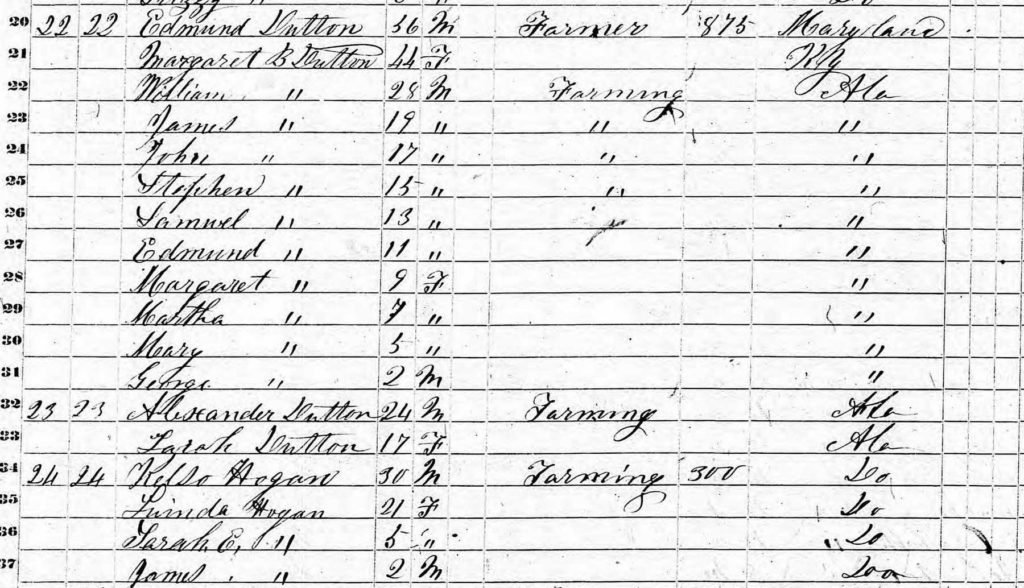 20 22 22 Edmund Dutton 56 M Farmer 875 Maryland
21 Margaret B Dutton 44 F Ky
22 William " 28 M Farming Ala
23 James " 19 " " "
24 John " 17 " " "
25 Stephen " 15 " " "
26 Samuel " 13 " "
27 Edmund " 11 " "
28 Margaret " 9 F "
29 Martha " 7 " "
30 Mary " 5 " "
31 George " 2 M "
32 23 23 Alexander Dutton 24 M Farming Ala
33 Sarah Dutton 17 F Ala
34 24 24 Kelso Hogan 30 M Farming 300 Do
35 Hogan 21 F Do
36 Sarah E. " 5 " Do
37 James " 2 M